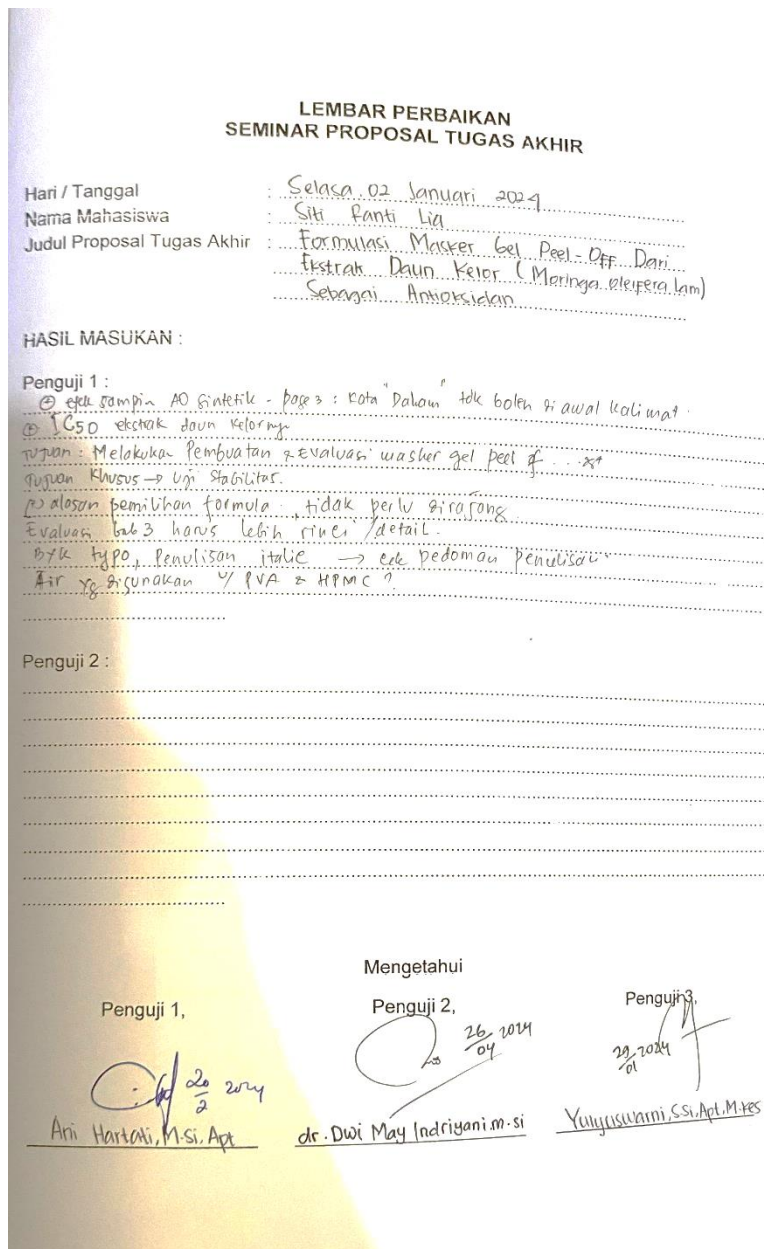 LEMBAR PERBAIKAN
SEMINAR PROPOSAL TUGAS AKHIR
Hari / Tanggal : Selasa, 02 Januari 2024
Nama Mahasiswa : Siti Ranti Lia
Judul Proposal Tugas Akhir : Formulasi Masker Gel Peel-OFF Dari
Ekstrak Daun Kelor (Moringa oleifera lam)
Sebagai Antioksidan
HASIL MASUKAN :
Penguji 1 :
efek sampin AO Sintetik - page 3 : Kata "Dalam" tdk boleh di awal kalimat.
IC50 ekstrak daun kelornya
Tujuan : Melakukan Pembuatan & Evaluasi masker gel peel of ...
Tujuan Khusus → Uji Stabilitas.
alasan pemilihan formula tidak perlu
Evaluasi bab 3 harus lebih rinci / detail.
Byk typo, Penulisan italic → cek pedoman penulisan
Air yg digunakan u/ PVA & HPMC ?
Penguji 2 :
Mengetahui
Penguji 1, Penguji 2, Penguji 3,
20/2 2024 26/04 2024 29/01 2024
Ani Hartati, M.Si. Apt dr. Dwi May Indriyani.m.si Yulyuswarni, S.Si, Apt, M.Kes